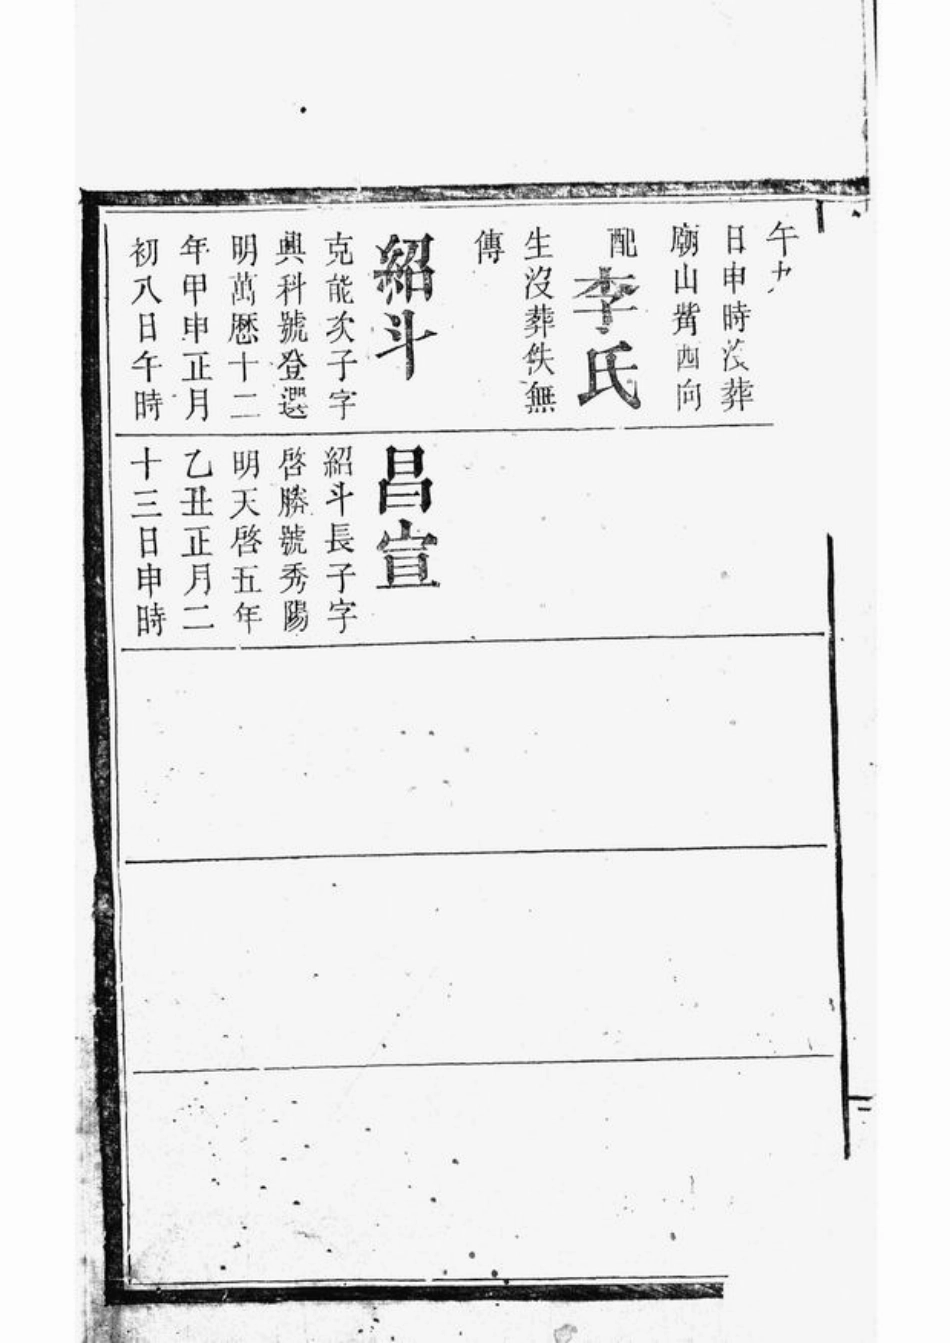 午九
日申時沒葬
廟山觜西向
配李氏
生沒葬佚無
傳
紹斗
克能次子字
興科號登選
明萬厯十二
年甲申正月
初八日午時
昌宣
紹斗長子字
啓勝號秀陽
明天啓五年
乙丑正月二
十三日申時